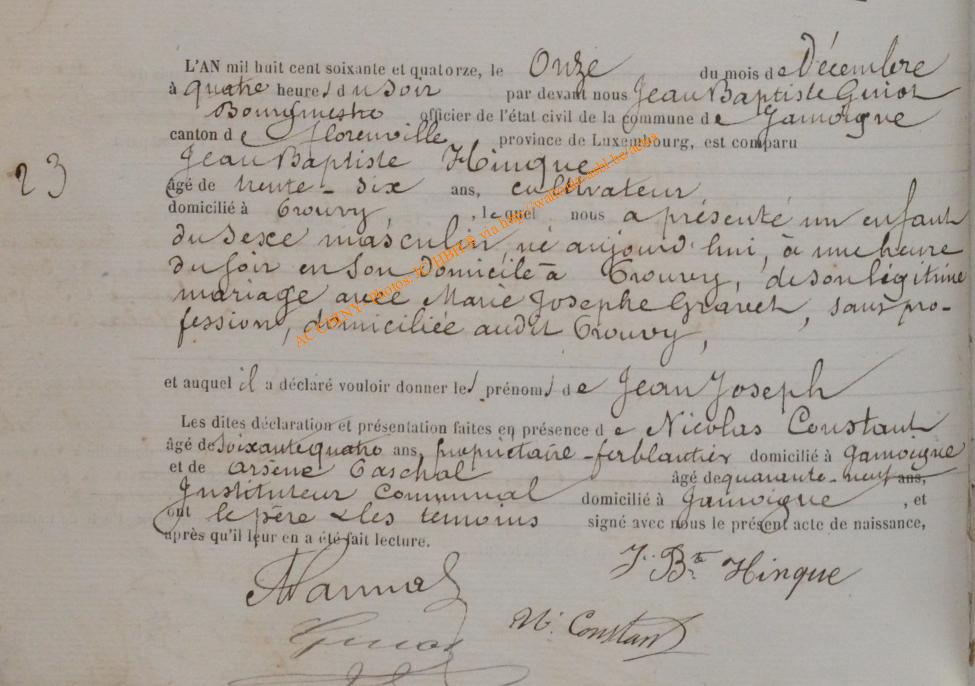 L'AN mil huit cent soixante et quatorze, le Onze du mois de Décembre
à quatre heures du soir par devant nous Jean Baptiste Guiot
Bourgmestre officier de l'état civil de la commune de Jamoigne
canton de Florenville province de Luxembourg, est comparu
Jean Baptiste Hinque
23
âgé de trente-six ans, cultivateur
domicilié à Prouvy, lequel nous a présenté un enfant
du sexe masculin, né aujourd'hui, à une heure
du soir en son domicile à Prouvy, de son légitime
mariage avec Marie Josephe Gravet, sans pro-
fession, domiciliée audit Prouvy,
et auquel il a déclaré vouloir donner les prénoms de Jean Joseph
Les dites déclaration et présentation faites en présence de Nicolas Constant
âgé de soixante quatre ans, propriétaire-ferblantier domicilié à Jamoigne
et de Arsène Paschal âgé de quarante-neuf ans,
Instituteur Communal domicilié à Jamoigne, et
ont le père & les témoins signé avec nous le présent acte de naissance,
après qu'il leur en a été fait lecture.
J. Bte Hinque
N. Constant
Guiot